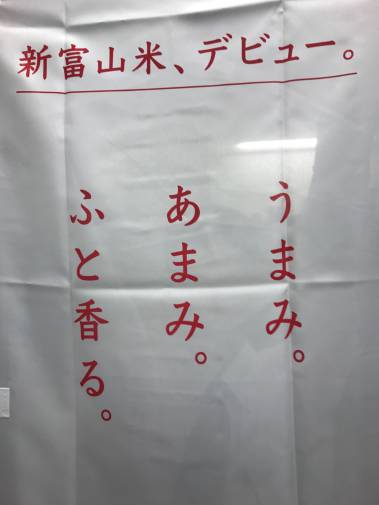 新富山米、デビュー。
うまみ。
あまみ。
ふと香る。